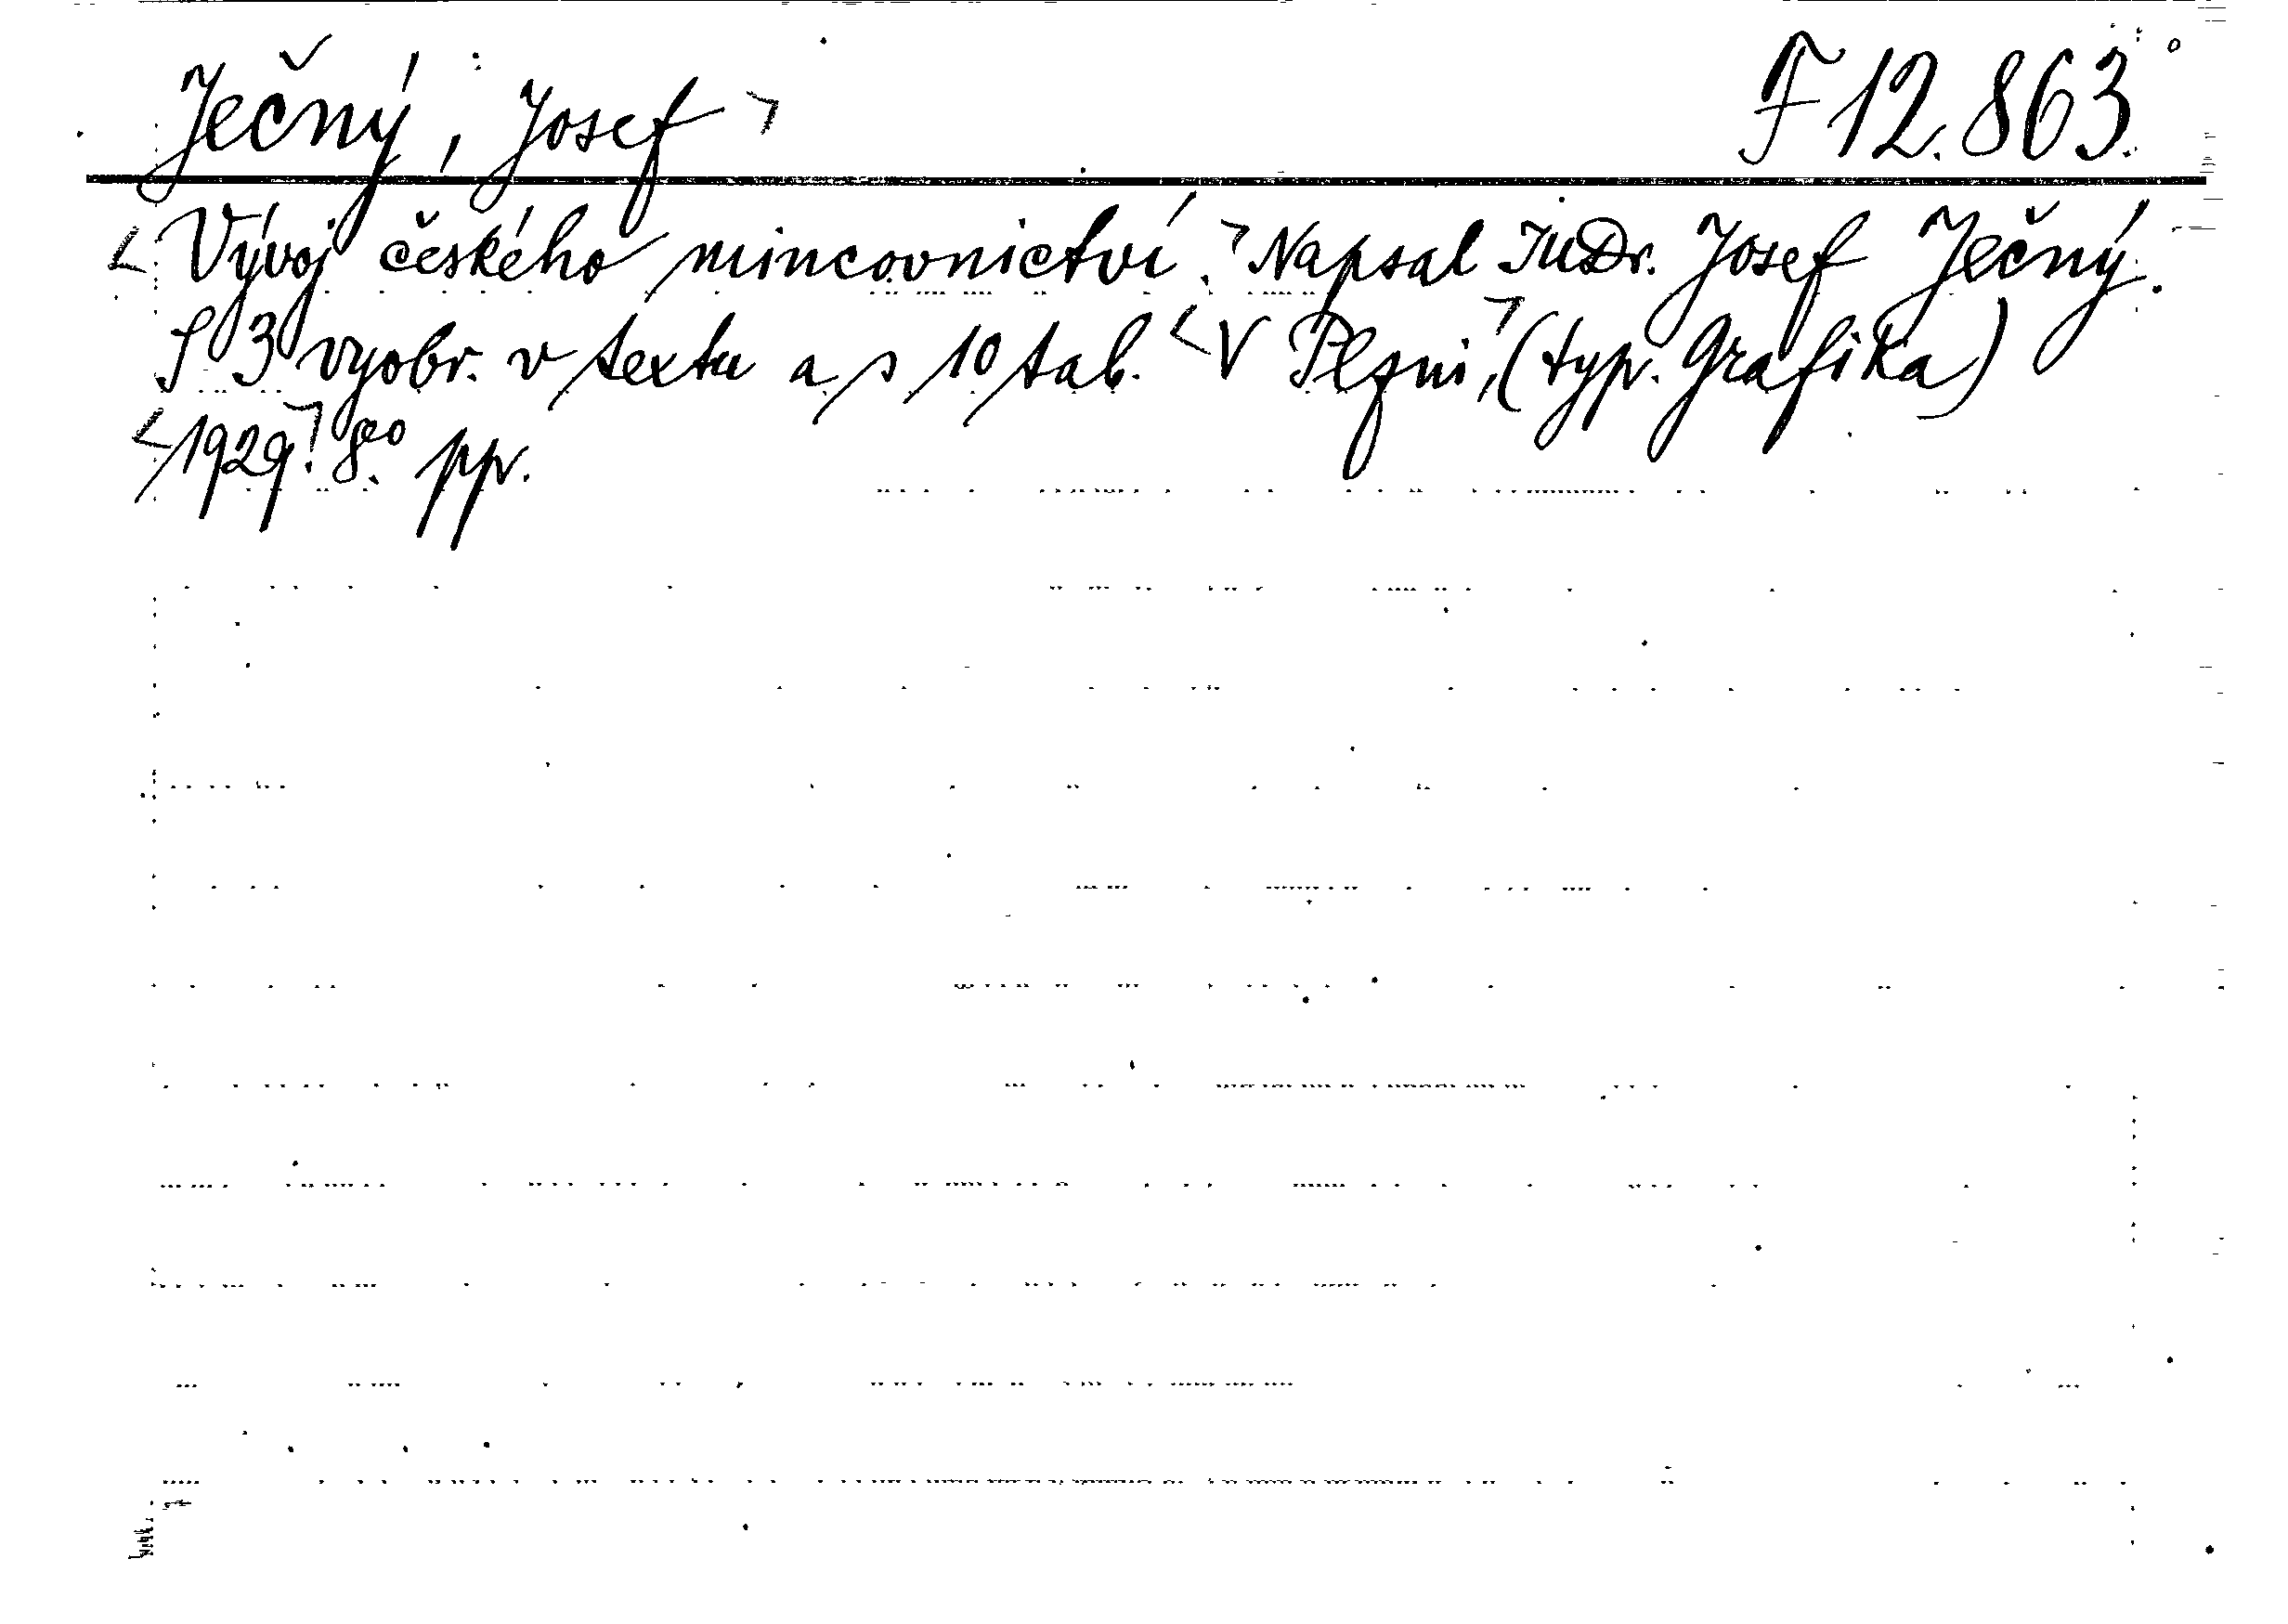 Ječný, Josef ⌝ F 12.863.
< Vývoj českého mincovnictví. ⌝ Napsal JUDr. Josef Ječný.
S 3 vyobr. v textu a s 10 tab. < V Plzni, ⌝ (typ. Grafika)
< 1929. ⌝ 8.vo ppr.